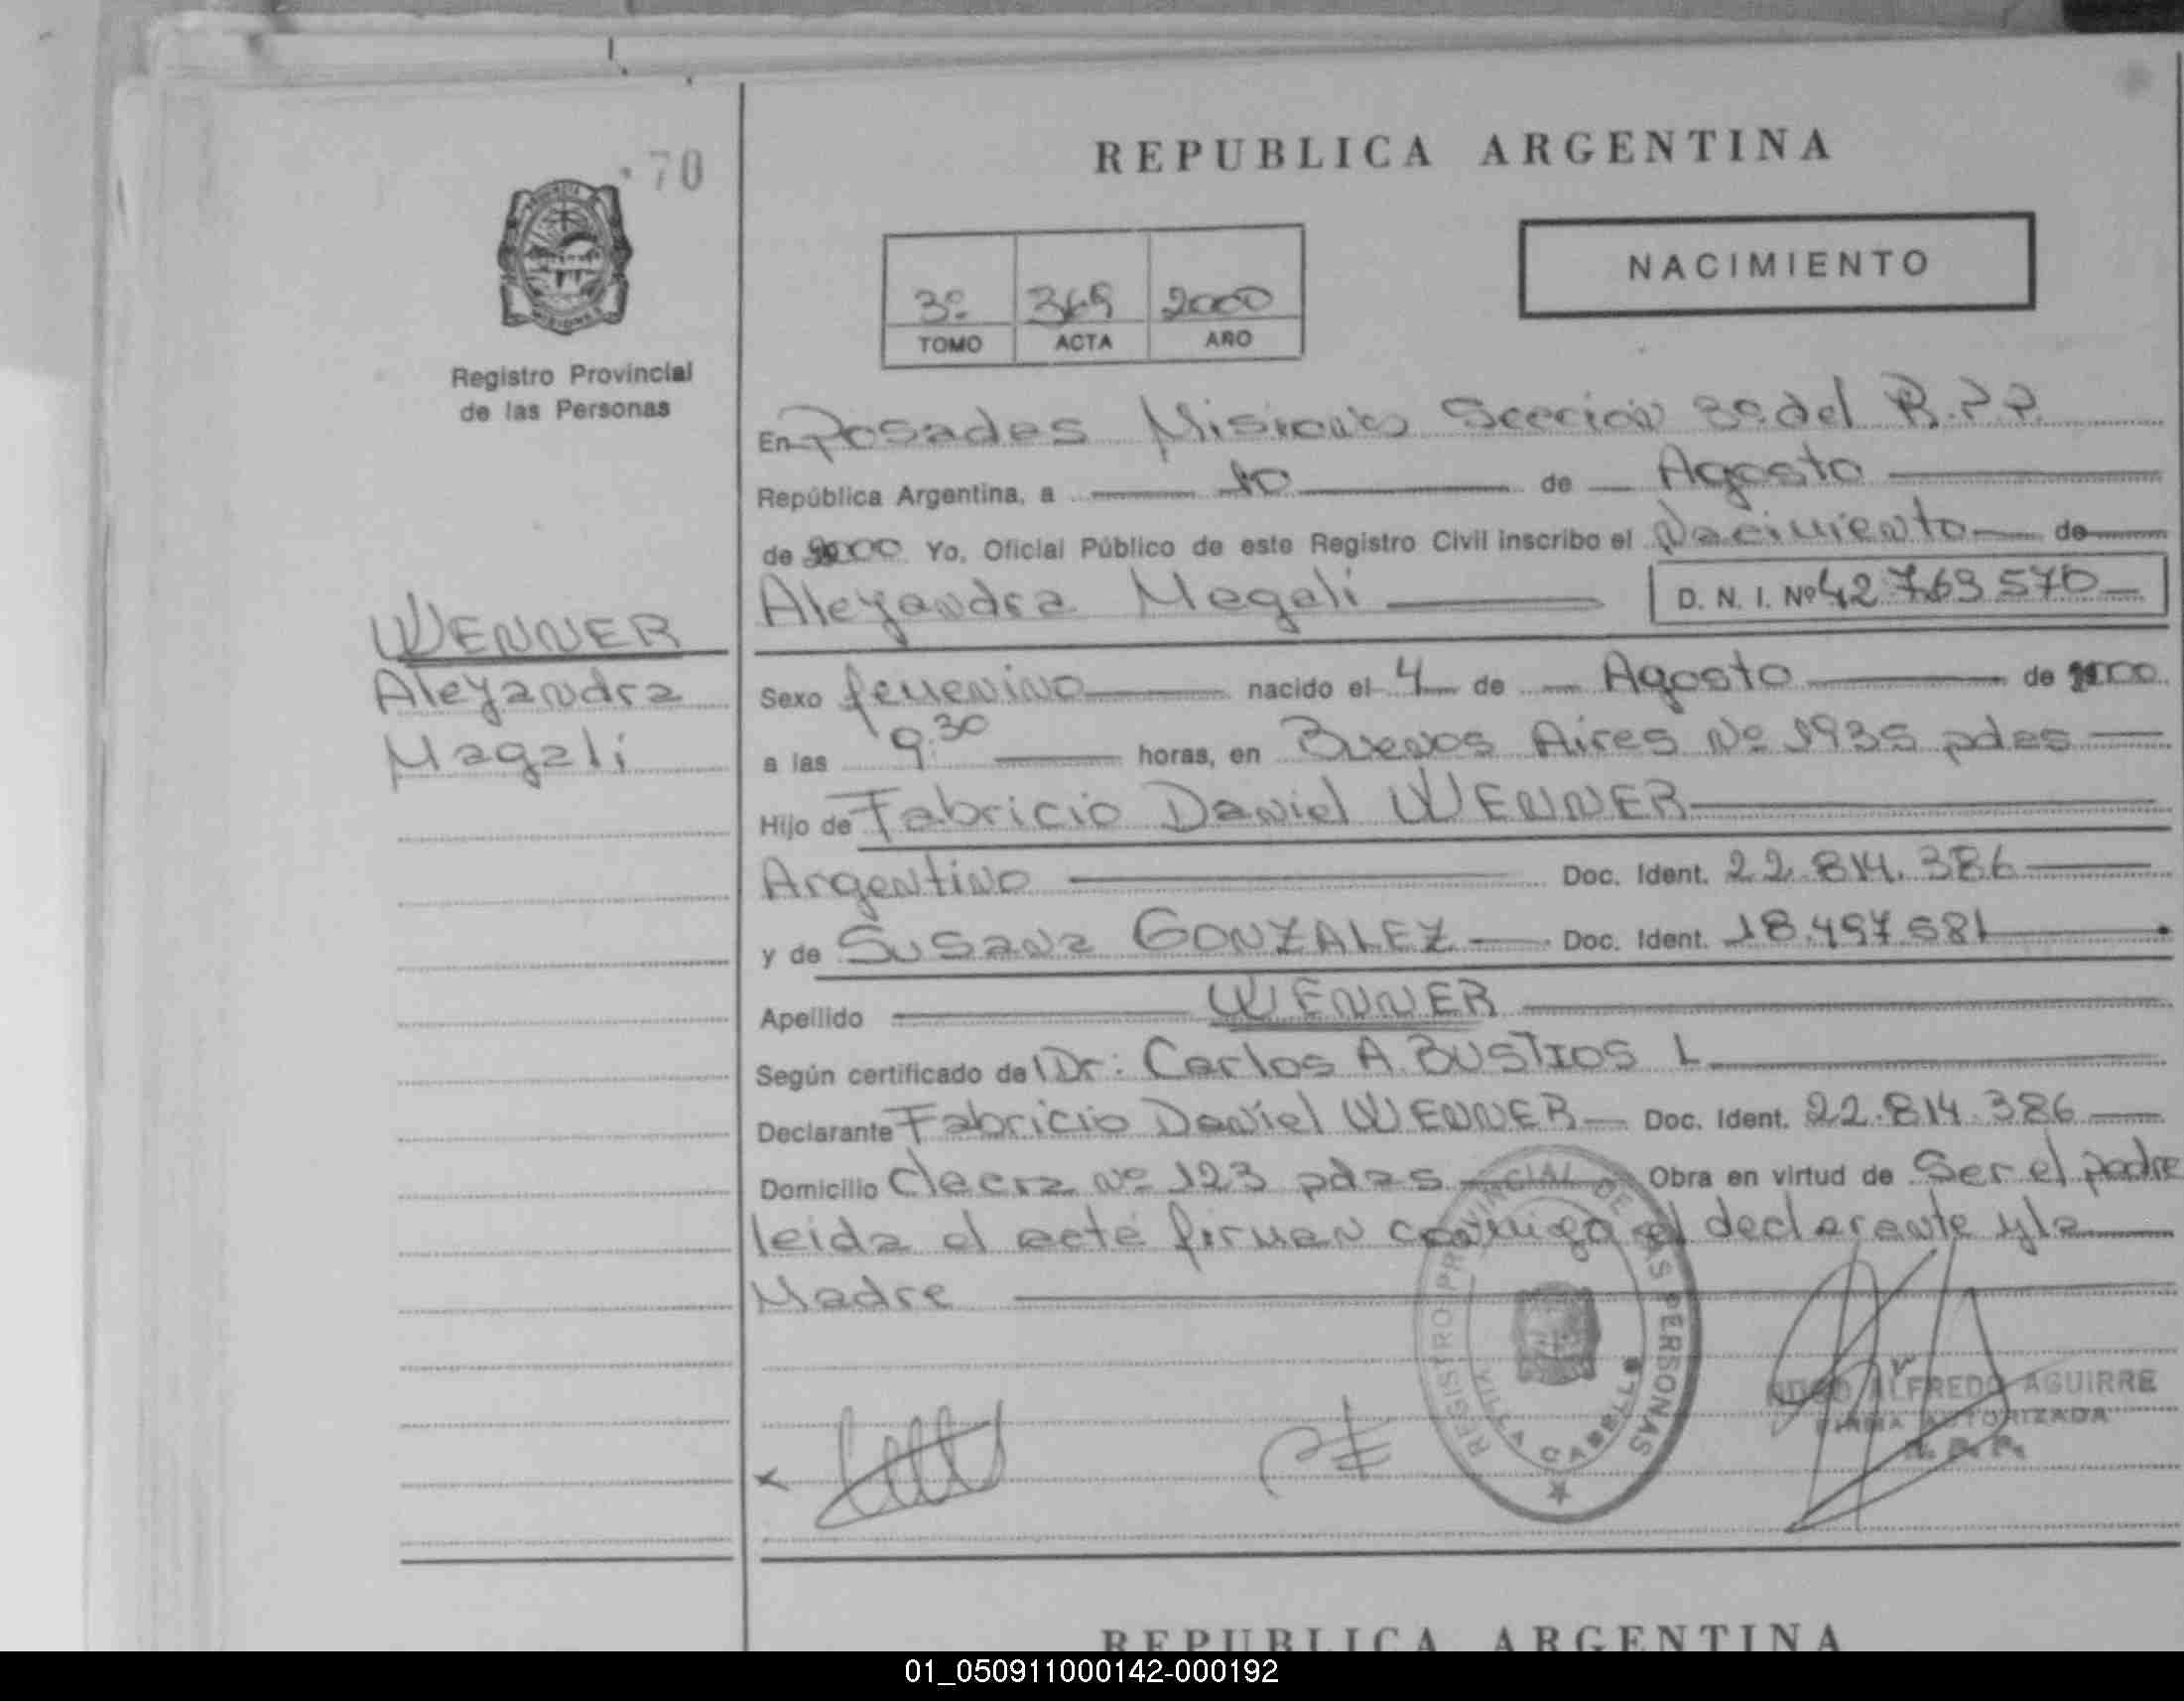 70
REPUBLICA ARGENTINA
NACIMIENTO
3º 369 2000
TOMO ACTA AÑO
Registro Provincial
de las Personas
En Posadas Misiones Sección 3º del R.P.P.
República Argentina, a 10 de Agosto
de 2000 Yo, Oficial Público de este Registro Civil inscribo el Nacimiento de
Aleyandra Megali D. N. I. Nº 42 769 570
WENNER
Aleyandra
Magali
Sexo femenino nacido el 4 de Agosto de 2000
a las 9.30 horas, en Buenos Aires Nº 1935 pdas
Hijo de Fabricio Daniel WENNER
Argentino Doc. Ident. 22.814.386
y de Susana GONZALEZ Doc. Ident. 18.497.681
Apellido WENNER
Según certificado de Dr: Carlos A. BUSTIOS L
Declarante Fabricio Daniel WENNER Doc. Ident. 22.814.386
Domicilio Nº 123 pdas Obra en virtud de Ser el padre
leida el acta firman conmigo el declarante y la
Madre
REGISTRO PROVINCIAL DE LAS PERSONAS
VILLA CABELLO
ALFREDO AGUIRRE
FIRMA AUTORIZADA
R. P. P.
REPUBLICA ARGENTINA
01_050911000142-000192